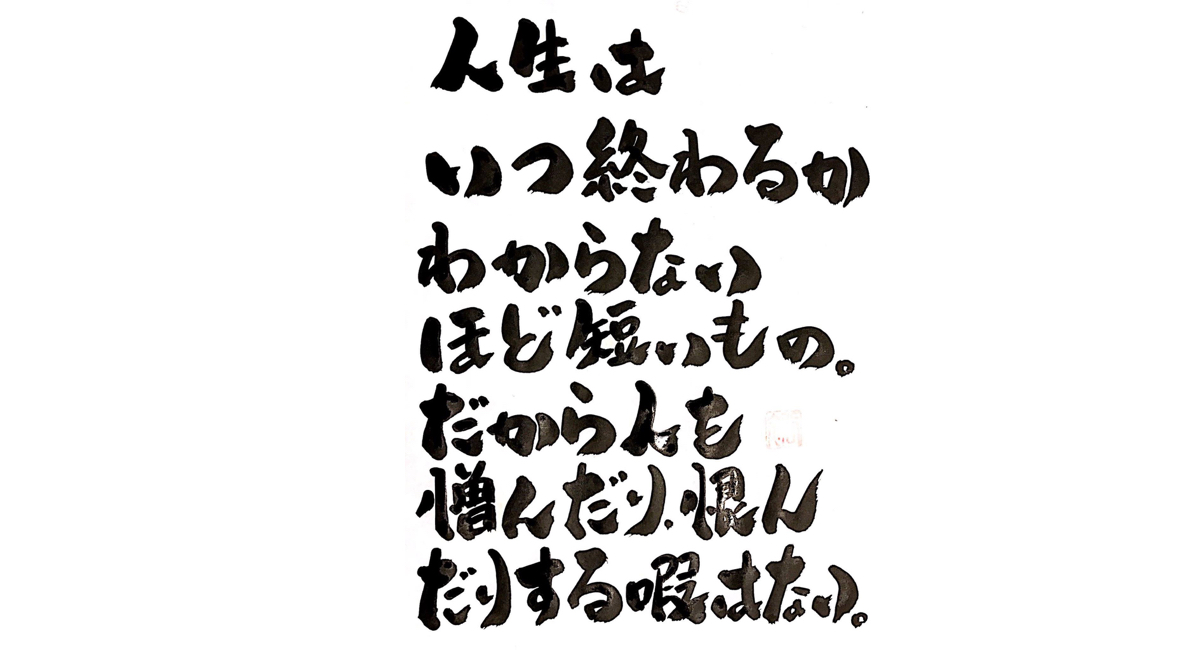 人生は
いつ終わるか
わからない
ほど短いもの。
だから人を
憎んだり、恨ん
だりする暇はない。